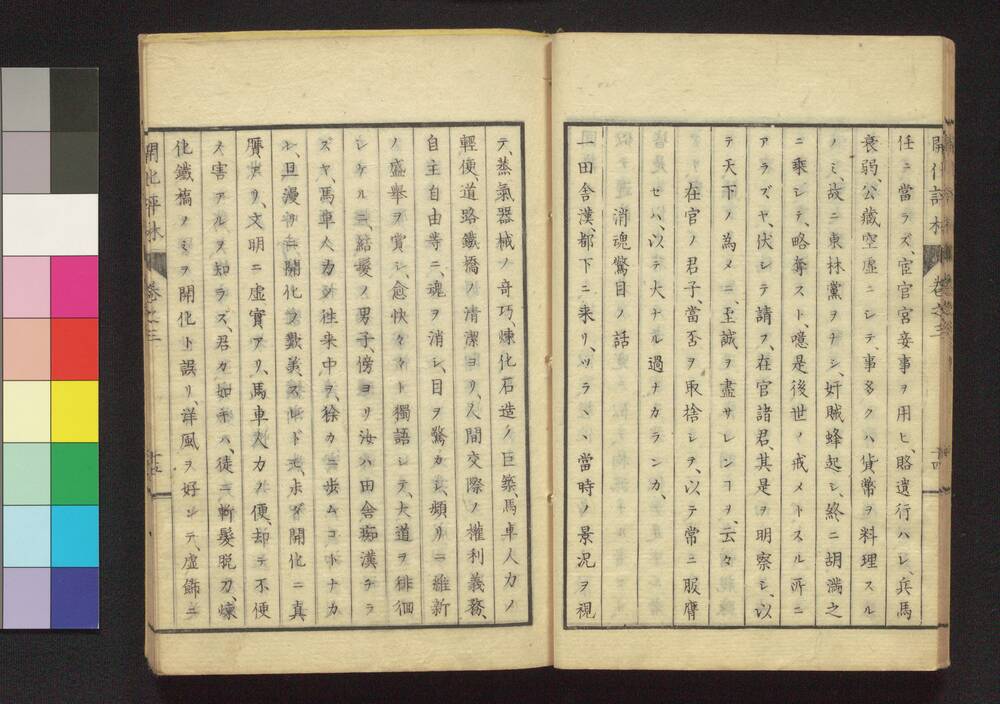 開化評林 卷之三 十四
任ニ當ラズ、宦官宮妾事ヲ用ヒ、賂遺行ハレ、兵馬
衰弱、公藏空虚ニシテ、事多クハ貨幣ヲ料理スル
ノミ、故ニ東林黨ヲナシ、奸賊蜂起シ、終ニ胡満之
ニ乘シテ、略奪スト、噫是後世ノ戒メトスル所ニ
アラズヤ、伏シテ請フ、在官諸君、其是ヲ明察シ、以
テ天下ノ為メニ、至誠ヲ盡サレンヿヲ、云々
在官ノ君子、當否ヲ取捨シテ、以テ常ニ服膺
セハ、以テ大ナル過ナカランカ、
消魂驚目ノ話
一田舎漢、都下ニ来リ、ツラヽヽ當時ノ景況ヲ視
テ、蒸氣器械ノ奇巧、煉化石造ノ巨築、馬車人力ノ
輕便、道路鐵橋ノ清潔ヨリ、人間交際ノ權利義務、
自主自由等ニ、魂ヲ消シ、目ヲ驚カシ、頻リニ維新
ノ盛擧ヲ賞シ、愈快々々ト獨語シテ、大道ヲ徘徊
シケルニ、結髮ノ男子、傍ヨリ汝ハ田舎痴漢ナラ
ズヤ、馬車人力ノ往来中ヲ、徐カニ歩ムコトナカ
レ、且漫リニ開化ヲ歎美スレドモ、未ダ開化ニ真
贋アリ、文明ニ虚實アリ、馬車人力ノ便、却テ不便
ノ害アルヲ知ラズ、君カ如キハ、徒ニ斬髮脱刀、煉
化鐵橋ノミヲ開化ト誤リ、洋風ヲ好ンテ、虚飾ニ
開化評林 卷之三 十五